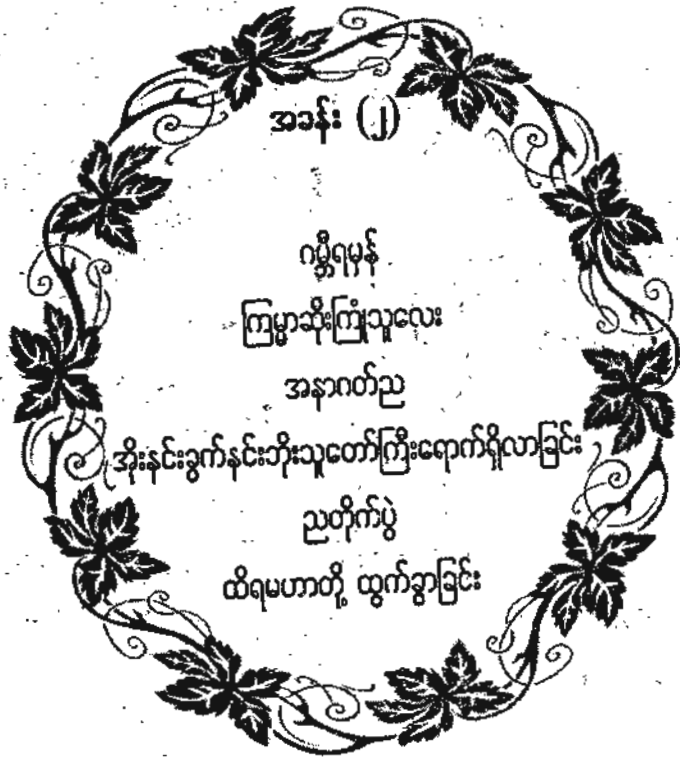 အခန်း (၂)
ဂမ္ဘီရမှန်
ကြမ္မာဆိုးကြုံသူလေး
အနာဂတ်ည
အိုးနင်းခွက်နင်းဘိုးသူတော်ကြီးရောက်ရှိလာခြင်း
ညတိုက်ပွဲ
ထိရမဟာတို့ ထွက်ခွာခြင်း